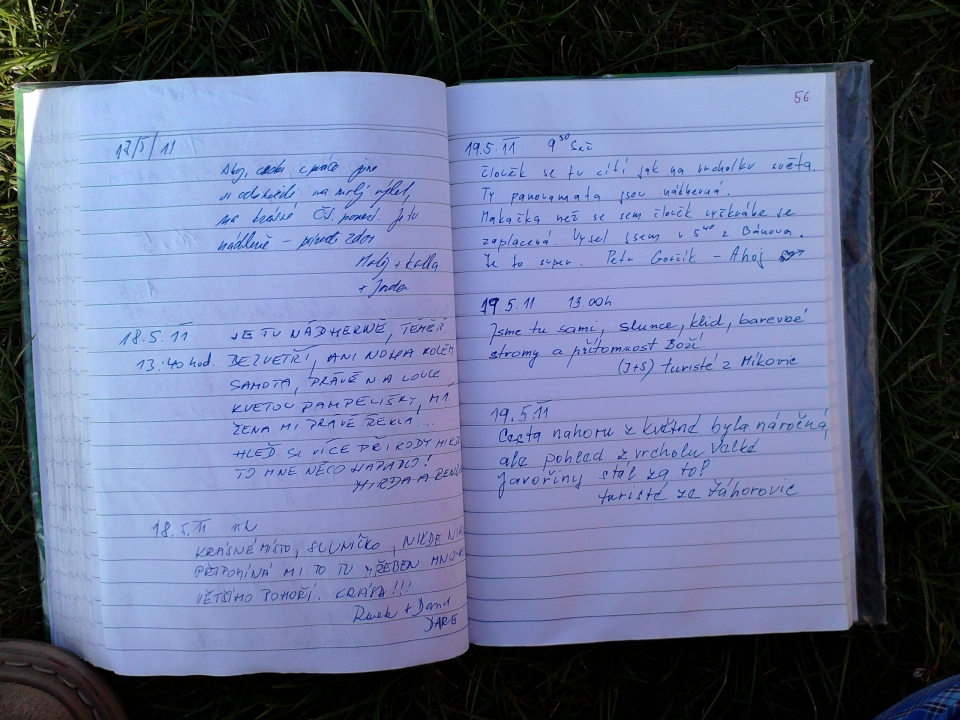 17/5/11
Ahoj, cestou z práce jsme
si odskočili na malý výlet,
na krásné
nádherně –
+ Jorda
18.5.11 JE TU NÁDHERNĚ, TÉMĚŘ
13:40 hod. BEZVĚTŘÍ, ANI NOHA KOLEM
SAMOTA, PRÁVĚ NA LOUCE
KVETOU PAMPELIŠKY, MÁ
ŽENA MI PRÁVĚ ŘEKLA ...
HLEĎ SI VÍCE PŘÍRODY
TO MNE NĚCO NAPADLO!
MIRDA A
18.5.11
KRÁSNÉ MÍSTO, SLUNÍČKO, NIKDE
PŘIPOMÍNÁ MI TO TU HŘEBEN
VĚTŠÍHO POHOŘÍ. KRÁSA!!!
+ David
56
19.5.11 9³⁰ SEČ
Člověk se tu cítí jak na vrcholku světa.
Ty panoramata jsou nádherná.
Makačka než se sem člověk vyškrábe se
zaplacená. Vyšel jsem v 5⁴⁰ z Bánova.
Je to super. Petr – Ahoj
19.5.11 13.00h
Jsme tu sami, slunce, klid, barevné
stromy a přítomnost Boží.
(J+S) turisté z Míkovic
19.5.11
Cesta nahoru z Květné byla náročná
ale pohled z vrcholu Velké
Javořiny stál za to!
turisté ze Záhorovic